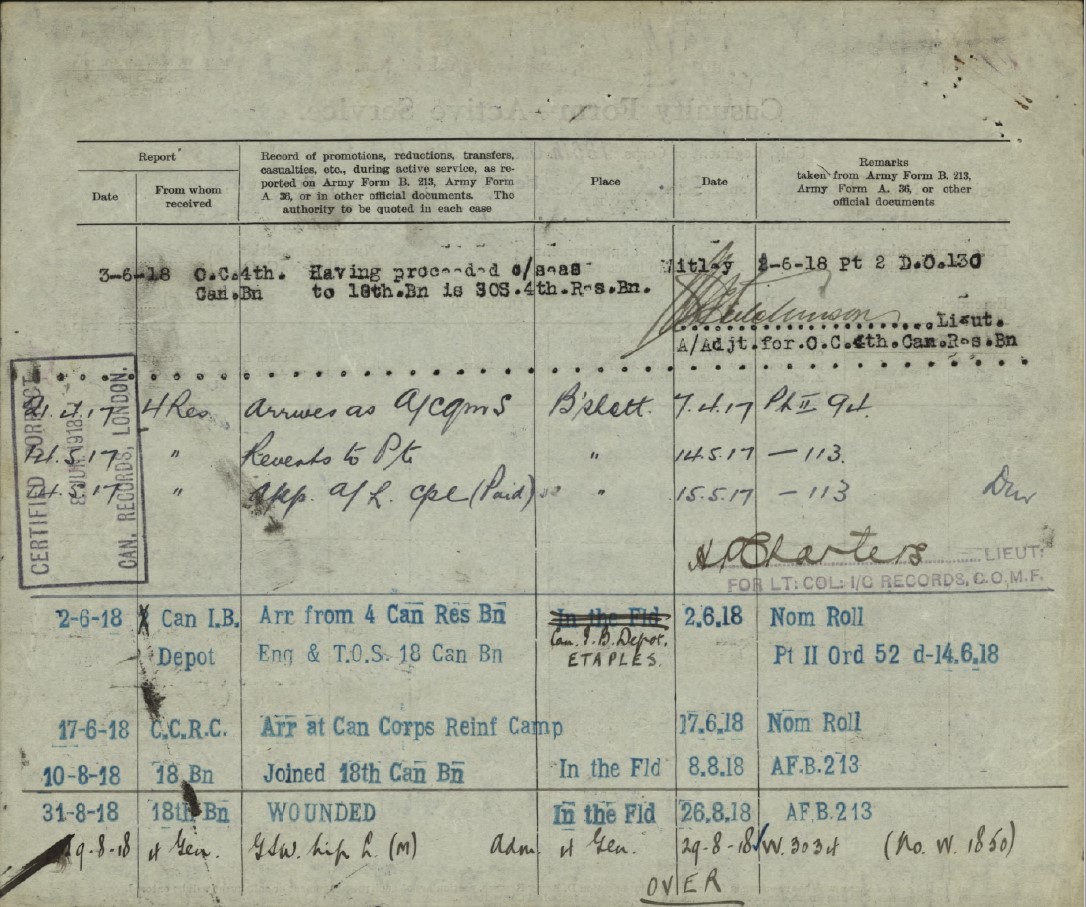 Casualty Form - Active Service.
Report
Record of promotions, reductions, transfers, casualties, etc., during active service, as reported on Army Form B. 213, Army Form A. 36, or in other official documents. The authority to be quoted in each case
Place
Date
Remarks taken from Army Form B. 213, Army Form A. 36, or other official documents
Date
From whom received
3-6-18 O.C.4th. Having proceeded o/seas Witley 2-6-18 Pt 2 D.O.130
Can.Bn to 18th.Bn is SOS.4th.Res.Bn.
Hutchinson Lieut.
A/Adjt.for.O.C.4th.Can.Res.Bn
CERTIFIED CORRECT
CAN. RECORDS, LONDON.
4.17 4 Res Arrives as A/CQMS B'shott. 7.4.17 Pt II 94.
14.5.17 " Reverts to Pte " 14.5.17 — 113.
5.17 " App. A/L. Cpl (Paid) " 15.5.17 — 113
Charters LIEUT:
FOR LT: COL: I/C RECORDS, C.O.M.F.
2-6-18 Can I.B. Arr from 4 Can Res Bn In the Fld 2.6.18 Nom Roll
Can. I.B. Depot.
Depot Eng & T.O.S. 18 Can Bn ETAPLES. Pt II Ord 52 d-14.6.18
17-6-18 C.C.R.C. Arr at Can Corps Reinf Camp 17.6.18 Nom Roll
10-8-18 18 Bn Joined 18th Can Bn In the Fld 8.8.18 AF.B.213
31-8-18 18th Bn WOUNDED In the Fld 26.8.18 AF.B.213
29-8-18 4 Gen. GSW. hip L. (M) Adm. 4 Gen. 29-8-18 W.3034 (No. W. 1850)
OVER